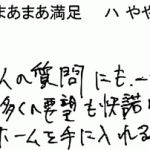 まあまあ満足　ハ やや
人の質問にも、一
多くの要望も快諾
ホームを手に入れる